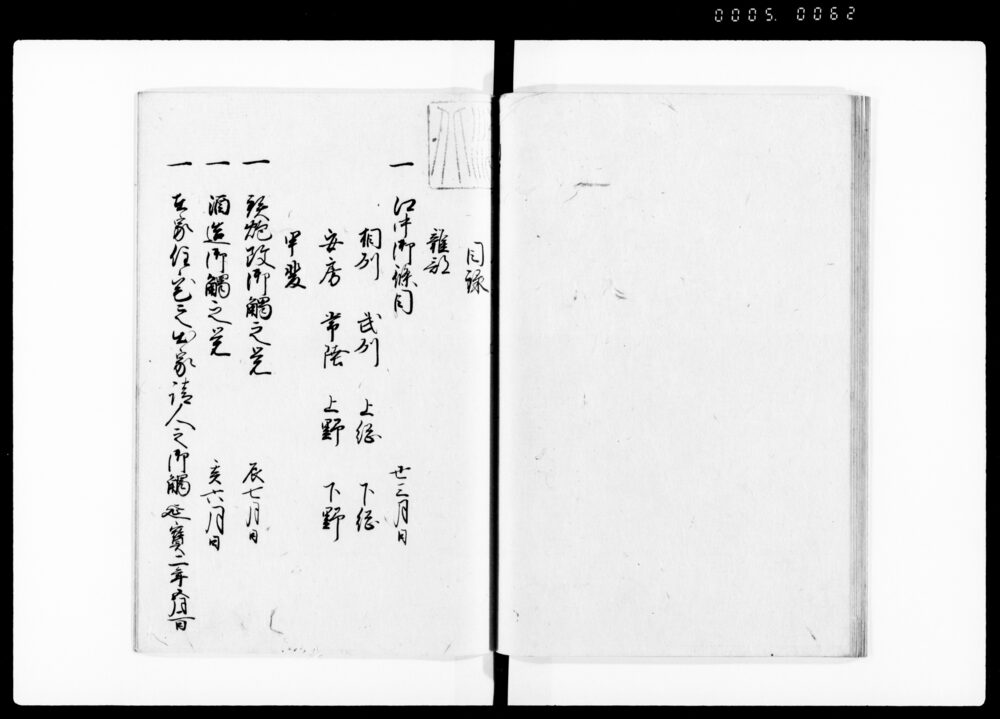 0005. 0062
目録
雑部
一 江中御條目 丑三月日
相列 武列 上総 下総
安房 常陸 上野 下野
甲斐
一 鉄炮改御觸之覚 辰七月日
一 酒造御觸之覚 亥六月日
一 在家住宅之出家請人之御觸 延寶二年